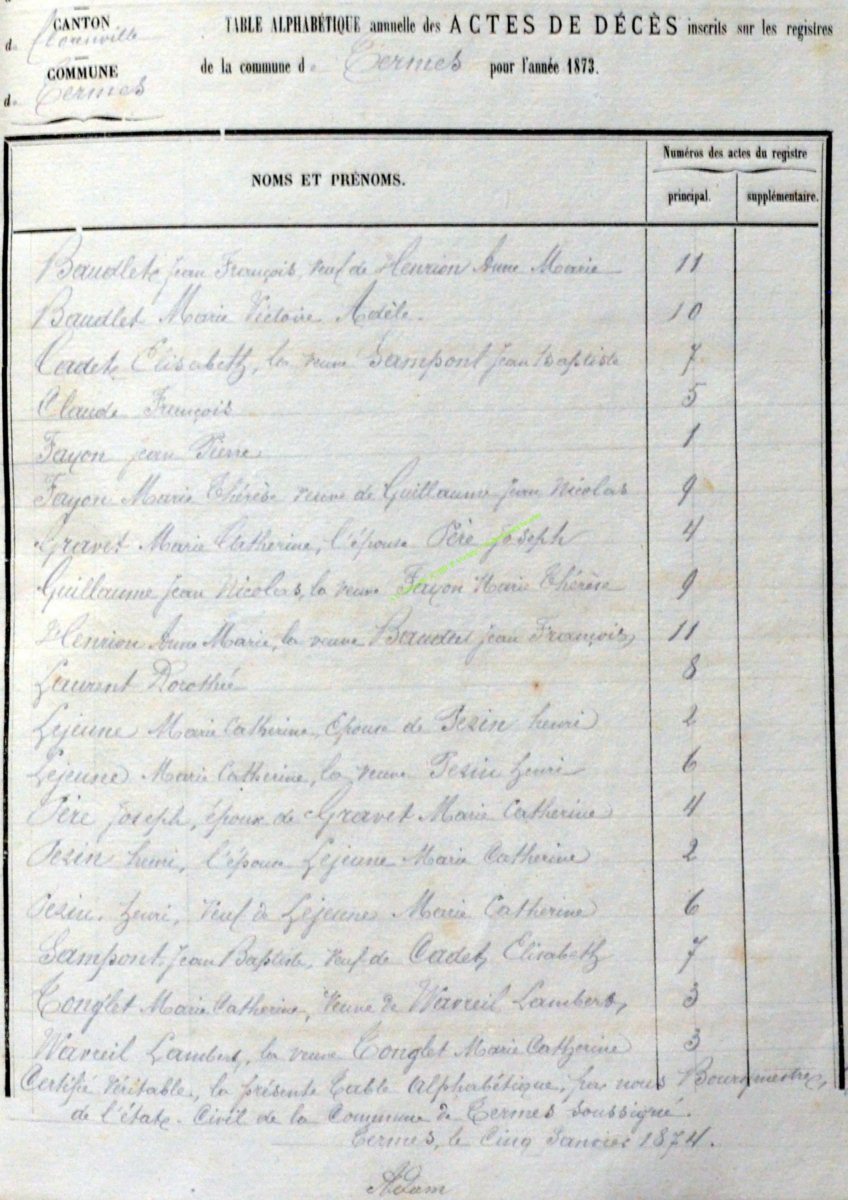 CANTON
de Florenville
COMMUNE
de Termes
TABLE ALPHABÉTIQUE annuelle des ACTES DE DÉCÈS inscrits sur les registres
de la commune de Termes pour l'année 1873.
NOMS ET PRÉNOMS.
Numéros des actes du registre
principal. supplémentaire.
Baudlet Jean François, veuf de Henrion Anne Marie 11
Baudlet Marie Victoire Adèle. 10
Cadet Elisabeth, la veuve Sampont Jean Baptiste 7
Claude François 5
Fayon Jean Pierre 1
Fayon Marie Thérèse veuve de Guillaume Jean Nicolas 9
Gravet Marie Catherine, l'épouse Père Joseph 4
Guillaume Jean Nicolas, la veuve Fayon Marie Thérèse 9
Henrion Anne Marie, la veuve Baudlet Jean François, 11
Laurent Dorothée 8
Lejeune Marie Catherine, Epouse de Pesin henri 2
Lejeune Marie Catherine, la veuve Pesin henri 6
Père Joseph, époux de Gravet Marie Catherine 4
Pesin henri, l'épouse Lejeune Marie Catherine 2
Pesin, henri, Veuf de Lejeune Marie Catherine 6
Sampont Jean Baptiste, Veuf de Cadet, Elisabeth 7
Tonglet Marie Catherine, Veuve de Wavreil Lambert, 3
Wavreil Lambert, la veuve Tonglet Marie Catherine 3
Certifié Véritable, la présente Table Alphabétique, par nous Bourgmestre,
de l'état Civil de la Commune de Termes soussigné.
Termes, le Cinq Janvier 1874.
Adam